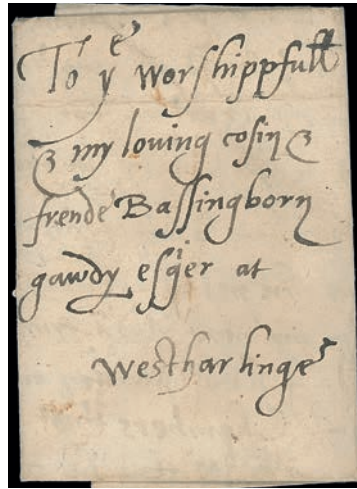 To yᵉ worshippfull
& my loving cosin &
frende Bassingborn
gawdy esqer at
westharlinge